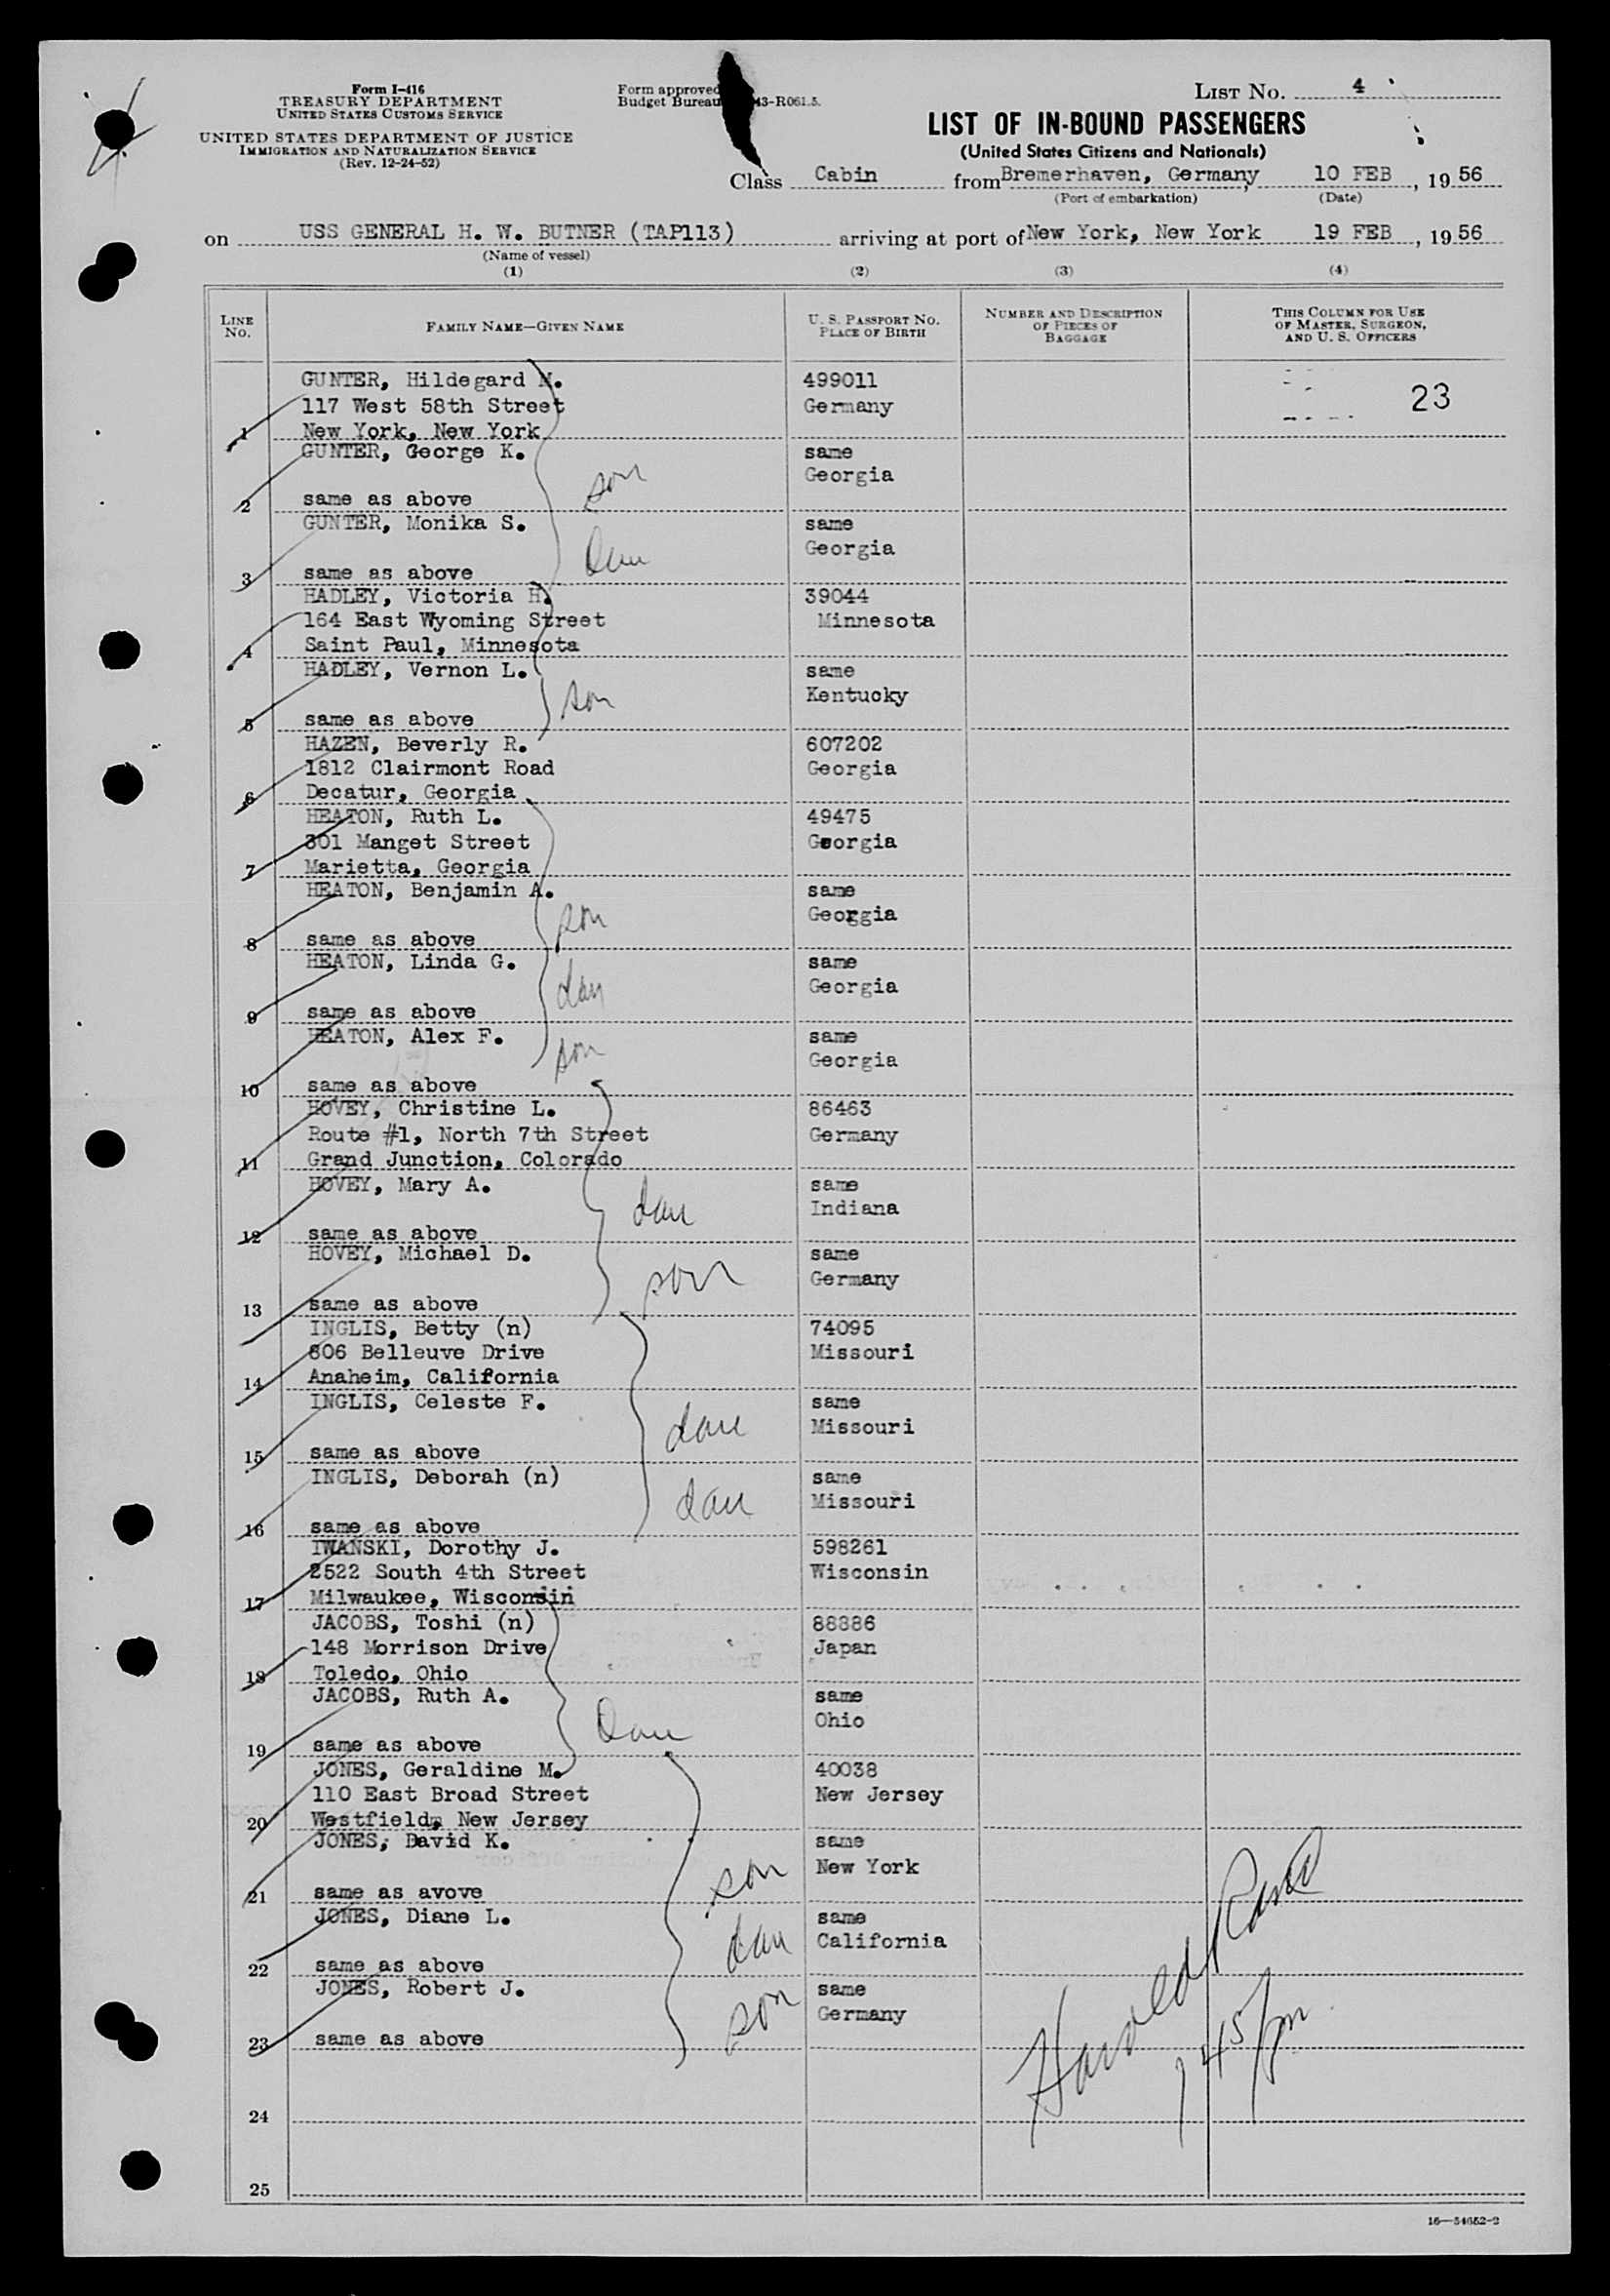 Form I-416
TREASURY DEPARTMENT
UNITED STATES CUSTOMS SERVICE
UNITED STATES DEPARTMENT OF JUSTICE
IMMIGRATION AND NATURALIZATION SERVICE
(Rev. 12-24-52)
Form approved
Budget Bureau 43-R061.5.
LIST No. 4
LIST OF IN-BOUND PASSENGERS
(United States Citizens and Nationals)
Class Cabin from Bremerhaven, Germany, 10 FEB, 19 56
(Port of embarkation) (Date)
on USS GENERAL H. W. BUTNER (TAP113) arriving at port of New York, New York 19 FEB, 19 56
(Name of vessel)
(1) (2) (3) (4)
LINE No.
FAMILY NAME—GIVEN NAME
U. S. PASSPORT NO.
PLACE OF BIRTH
NUMBER AND DESCRIPTION OF PIECES OF BAGGAGE
THIS COLUMN FOR USE OF MASTER, SURGEON, AND U. S. OFFICERS
GUNTER, Hildegard M. 499011
117 West 58th Street Germany 23
1 New York, New York
GUNTER, George K. same
son Georgia
2 same as above
GUNTER, Monika S. same
Dau Georgia
3 same as above
HADLEY, Victoria H. 39044
164 East Wyoming Street Minnesota
4 Saint Paul, Minnesota
HADLEY, Vernon L. same
son Kentucky
5 same as above
HAZEN, Beverly R. 607202
1812 Clairmont Road Georgia
6 Decatur, Georgia
HEATON, Ruth L. 49475
301 Manget Street Georgia
7 Marietta, Georgia
HEATON, Benjamin A. same
son Georgia
8 same as above
HEATON, Linda G. same
dau Georgia
9 same as above
HEATON, Alex F. same
son Georgia
10 same as above
HOVEY, Christine L. 86463
Route #1, North 7th Street Germany
11 Grand Junction, Colorado
HOVEY, Mary A. same
dau Indiana
12 same as above
HOVEY, Michael D. same
son Germany
13 same as above
INGLIS, Betty (n) 74095
806 Belleuve Drive Missouri
14 Anaheim, California
INGLIS, Celeste F. same
dau Missouri
15 same as above
INGLIS, Deborah (n) same
dau Missouri
16 same as above
IWANSKI, Dorothy J. 598261
2522 South 4th Street Wisconsin
17 Milwaukee, Wisconsin
JACOBS, Toshi (n) 88886
148 Morrison Drive Japan
18 Toledo, Ohio
JACOBS, Ruth A. same
Dau Ohio
19 same as above
JONES, Geraldine M. 40038
110 East Broad Street New Jersey
20 Westfield, New Jersey
JONES, David K. same
son New York
21 same as avove
JONES, Diane L. same
dau California
22 same as above
JONES, Robert J. same
son Germany
23 same as above
Harold Rand
1 45/pm
24
25
16—54652-2